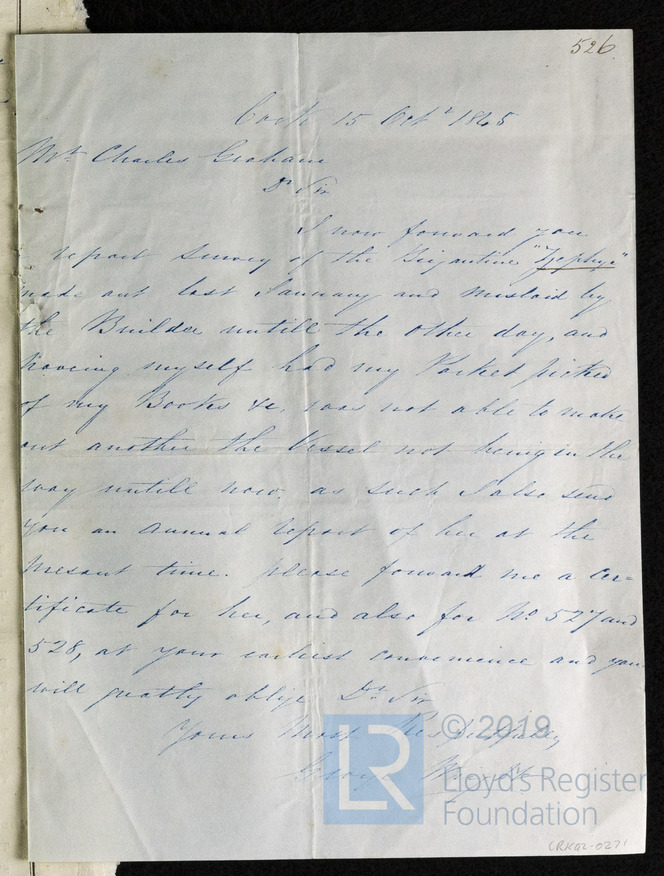 526
Cork 15 Octr 1845
Mr Charles Graham
Dr Sir
I now forward you
report survey of the Brigantine "Zephyr"
made out last January and mislaid by
the Builder untill the other day, and
having myself had my Pocket picked
of my Books &c, was not able to make
out another the Vessel not being in the
way untill now, as such I also send
you an annual report of her at the
present time. please forward me a cer-
tificate for her, and also for No 527 and
528, at your earliest convenience and you
will greatly oblige Dr Sir
Yours Most Respectfully
© 2019
LR
Lloyd's Register
Foundation
CRK02-0271